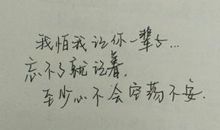 我怕我记你一辈子…
忘不了就记着.
至少心不会空荡不安.